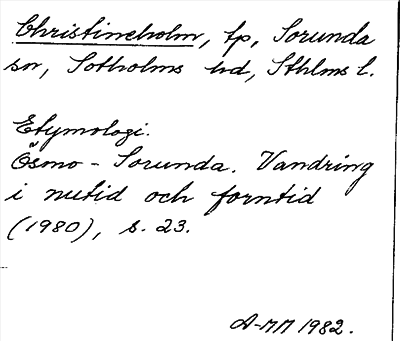 Christineholm, tp, Sorunda
sn, Sotholms hd, Sthlms l.
Etymologi.
Ösmo - Sorunda. Vandring
i nutid och forntid
(1980), s. 23.
A-MM 1982.